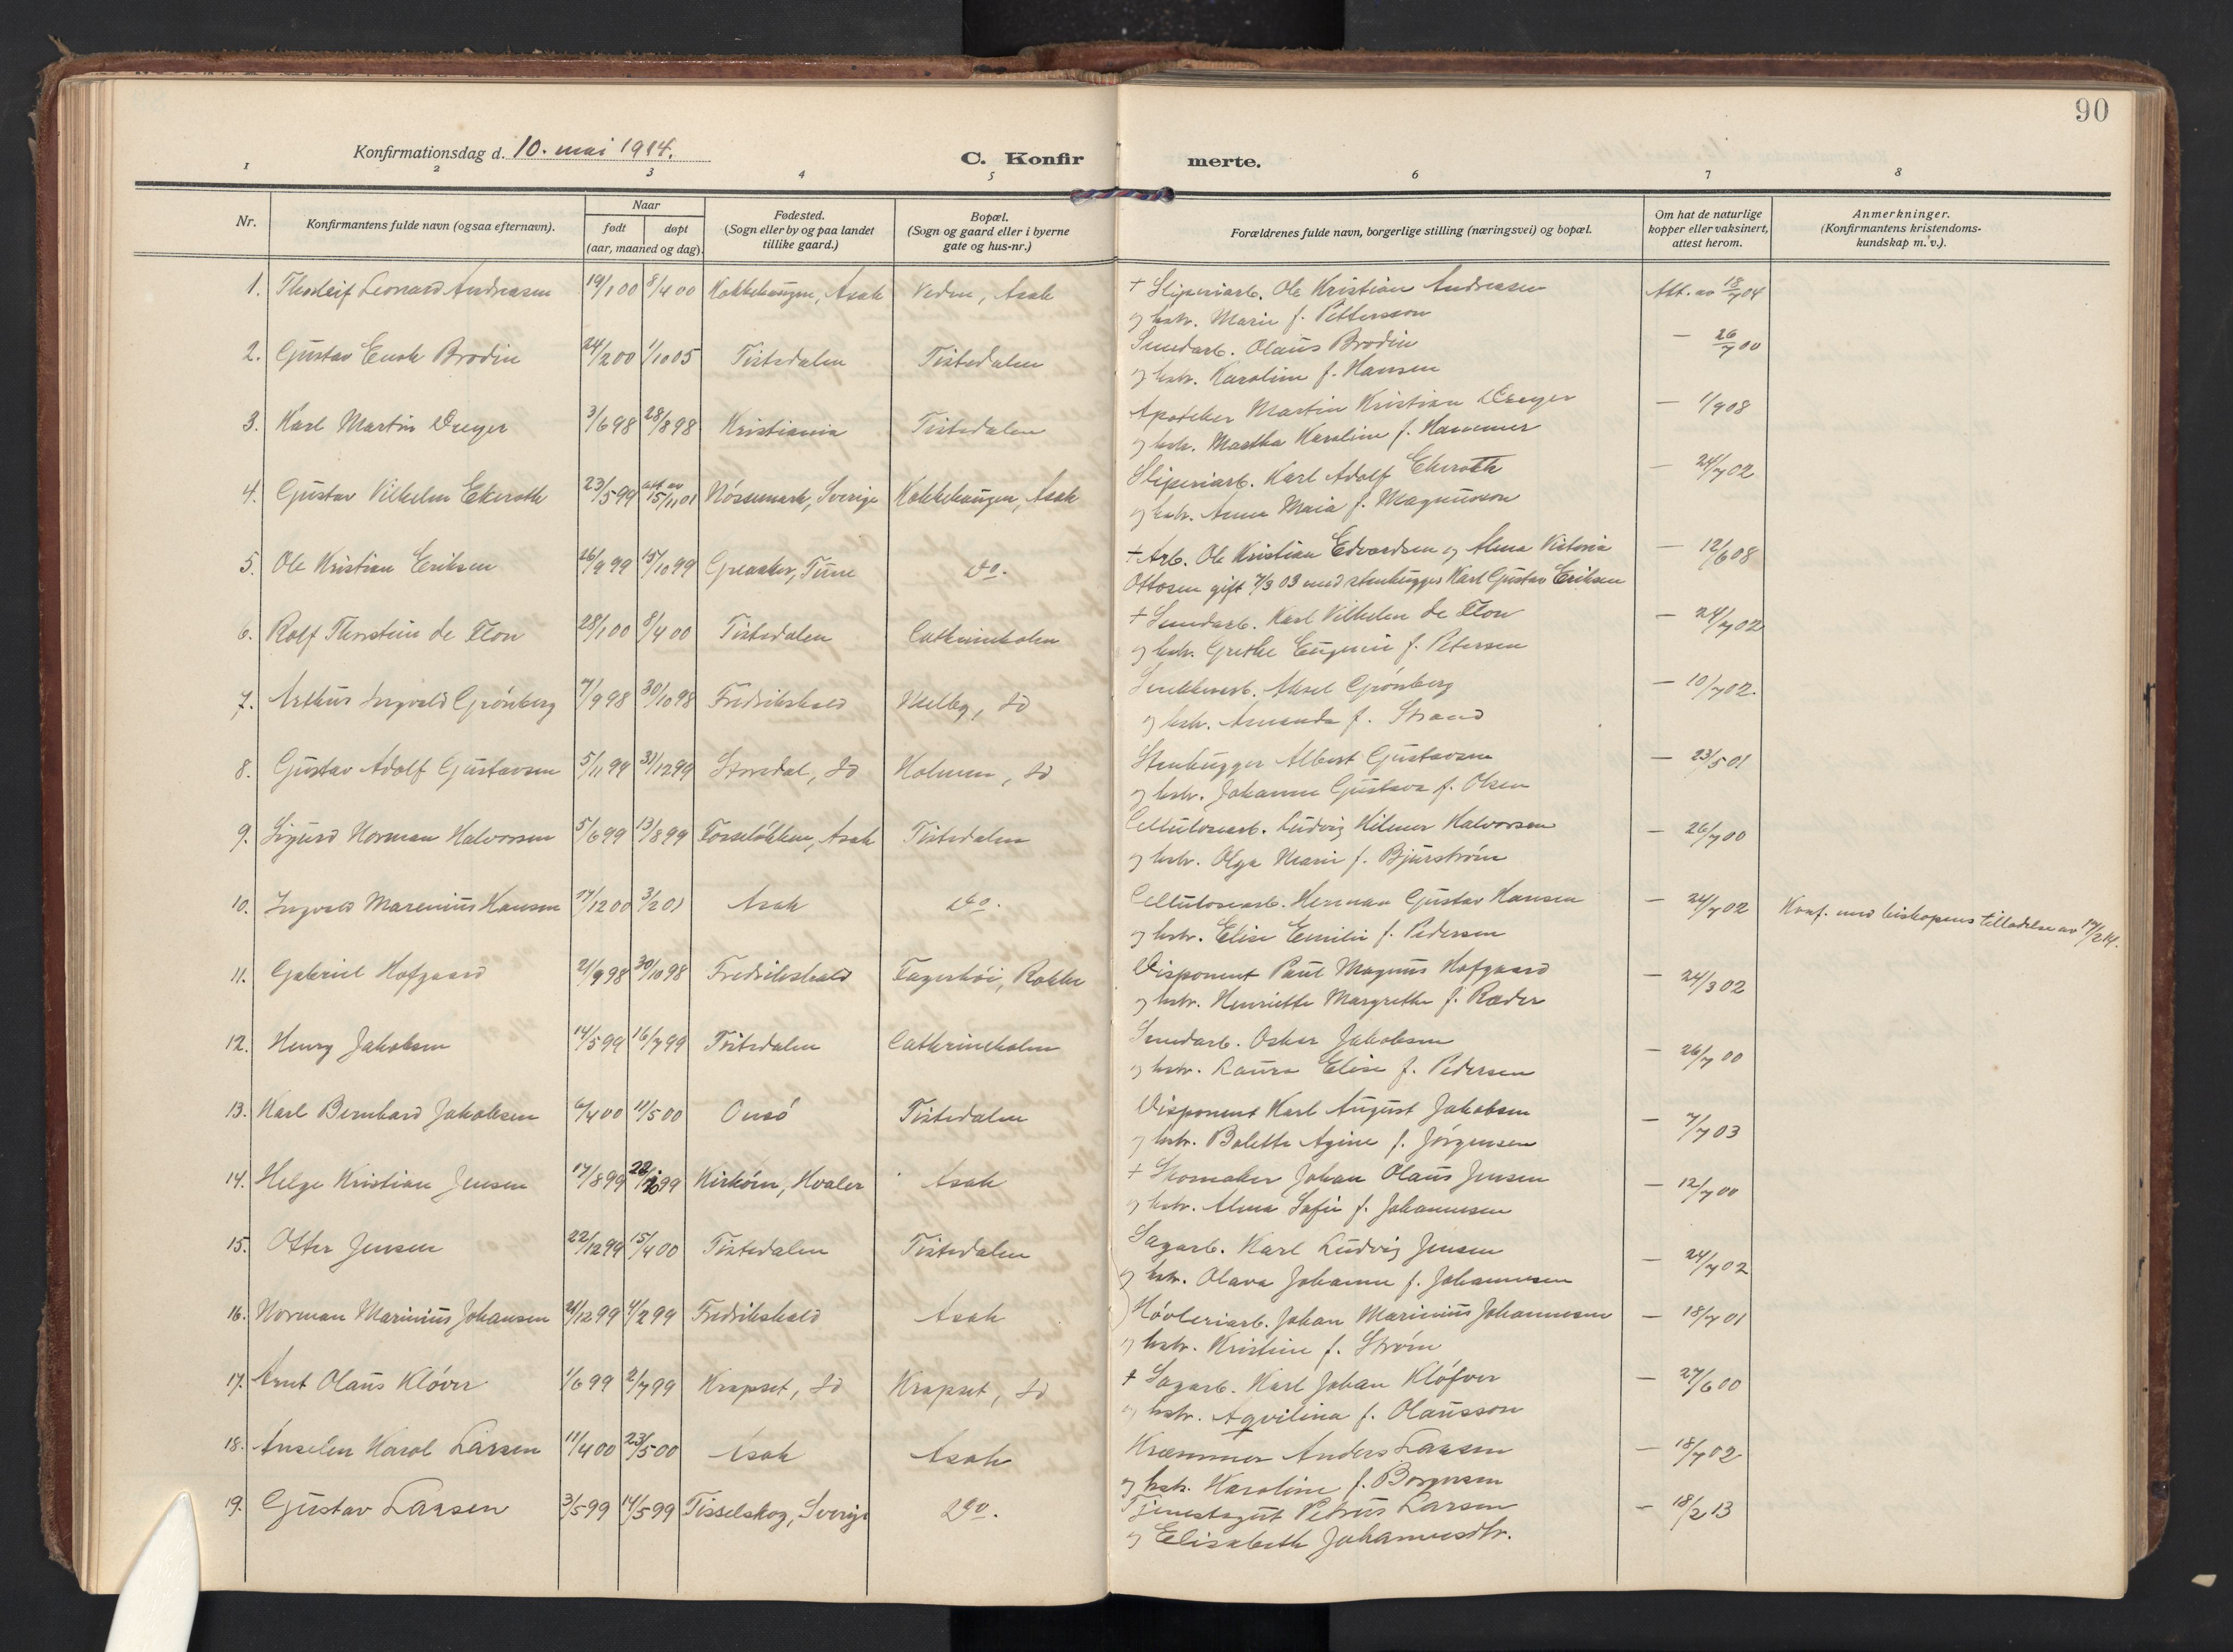 90
Konfirmationsdag d. 10. mai 1914.
C. Konfir merte.
1 2 3 4 5 6 7 8
Nr.
Konfirmantens fulde navn (ogsaa efternavn).
Naar
født døpt
(aar, maaned og dag).
Fødested.
(Sogn eller by og paa landet
tillike gaard.)
Bopæl.
(Sogn og gaard eller i byerne
gate og hus-nr.)
Forældrenes fulde navn, borgerlige stilling (næringsvei) og bopæl.
Om hat de naturlige
kopper eller vaksinert,
attest herom.
Anmerkninger.
(Konfirmantens kristendoms-
kundskap m. v.).
1. Thorleif Leonard Andreasen 19/1 00 8/4 00 Kokkehaugen, Asak Veden, Asak + Sliperiarb. Ole Kristian Andreasen Att. av 18/7 04
og hstr. Marie f. Pettersson
2. Gustav Enok Brodin 24/2 00 1/10 05 Tistedalen Tistedalen Smedarb. Olaus Brodin — 26/7 00
og hstr. Karoline f. Hansen
3. Karl Martin Dreyer 3/6 98 28/8 98 Kristiania Tistedalen Apoteker Martin Kristian Dreyer — 1/9 08
og hstr. Martha Karoline f. Hammer
4. Gustav Vilhelm Ekeroth 23/5 99 att. av 15/11 01 Nössemark, Sverige Kokkehaugen, Asak Sliperiarb. Karl Adolf Ekeroth — 24/7 02
og hstr. Anna Maia f. Magnusson
5. Ole Kristian Eriksen 26/9 99 15/10 99 Greaaker, Tune Do. + Arb. Ole Kristian Edvardsen og Alma Victoria — 12/6 08
Ottosen gift 7/3 03 med stenhugger Karl Gustav Eriksen
6. Rolf Thorstein de Flon 28/1 00 8/4 00 Tistedalen Cathrineholm + Smedarb. Karl Vilhelm de Flon — 24/7 02
og hstr. Grethe Eugenie f. Petersen
7. Arthur Ingvald Grönberg 7/9 98 30/10 98 Fredrikshald Velby, Id Snekkerarb. Aksel Grönberg — 10/7 02.
og hstr. Amanda f. Strand
8. Gustav Adolf Gustavsen 5/11 99 31/12 99 Storedal, Id Holmen, Id Stenhugger Albert Gustavsen — 23/5 01
og hstr. Johanne Gustava f. Olsen
9. Sigurd Norman Halvorsen 5/6 99 13/8 99 Fosselökken, Asak Tistedalen Cellulosearb. Ludvig Hilmer Halvorsen — 26/7 00
og hstr. Olga Marie f. Bjurström
10. Ingvald Marenius Hansen 17/12 00 3/2 01 Asak Do. Cellulosearb. Herman Gustav Hansen — 24/7 02 Konf. med biskopens tilladelse av 17/2 14.
og hstr. Elise Emilie f. Pedersen
11. Gabriel Hofgaard 21/9 98 30/10 98 Fredrikshald Fagerhöi, Rokke Disponent Paul Magnus Hofgaard — 24/3 02
og hstr. Henriette Margrethe f. Ræder
12. Henry Jakobsen 14/5 99 16/7 99 Tistedalen Cathrineholm Smedarb. Oskar Jakobsen — 26/7 00
og hstr. Laura Elise f. Pedersen
13. Karl Bernhard Jakobsen 6/4 00 11/5 00 Onsö Tistedalen Disponent Karl August Jakobsen — 7/7 03
og hstr. Bolette Agine f. Jörgensen
14. Helge Kristian Jensen 17/8 99 22/10 99 Kirköen, Hvaler Asak + Skomaker Johan Olaus Jensen — 12/7 00
og hstr. Alma Sofie f. Johannesen
15. Otter Jensen 22/12 99 15/4 00 Tistedalen Tistedalen Sagarb. Karl Ludvig Jensen — 24/7 02
og hstr. Olava Johanne f. Johannesen
16. Norman Marinius Johansen 21/12 99 4/2 99 Fredrikshald Asak Hövleriarb. Johan Marinius Johannesen — 18/7 01
og hstr. Kristine f. Ström
17. Arnt Olaus Klöver 1/6 99 2/7 99 Krapset, Id Krapset, Id + Sagarb. Karl Johan Klöfver — 27/6 00
og hstr. Aqvilina f. Olausson
18. Anselm Karol Larsen 11/4 00 23/5 00 Asak Asak Kræmmer Anders Larsen — 18/7 02
og hstr. Karoline f. Borgersen
19. Gustav Larsen 3/5 99 14/5 99 Tisselskog, Sverige Do. Tjenestegut Petrus Larsen — 18/2 13
og Elisabeth Johannesdtr.